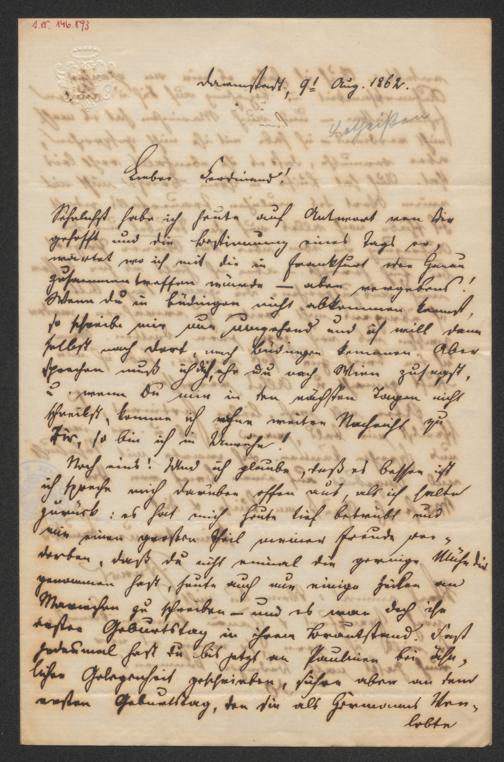 Darmstadt, 9t Aug. 1862.
Lieber Ferdinand!
Sehnlichst habe ich heute auf Antwort von Dir
gehofft und die Bestimmung eines Tags er,
wartet wo ich mit dir in Frankfurt oder Hanau
zusammentreffen würde — aber vergebens!
Wenn du in Büdingen nicht abkommen kannst,
so schreibe mir nur umgehend und ich will dann
selbst nach dort, nach Büdingen kommen. Aber
sprechen muß ich dich, ehe du nach Wien zusagst,
u. wenn Du mir in den nächsten Tagen nicht
schreibst, komme ich ohne weitere Nachricht zu
Dir, so bin ich in Unruhe!
Noch eins! Und ich glaube, daß es besser ist
ich spreche mich darüber offen aus, als ich halte
zurück: es hat mich heute tief betrübt und
mir einen großen Theil meiner Freude ver-
dorben, daß du nicht einmal die geringe Mühe dir
genommen hast, heute auch nur einige Zeilen an
Mariechen zu schreiben — und es war doch ihr
erster Geburtstag in ihrem Brautstand. Fast
jedesmal hast du bis jetzt an Paulinen bei ähn,
licher Gelegenheit geschrieben, aber an dem
ersten Geburtstag, den sie als Hermanns Ver,
lobte